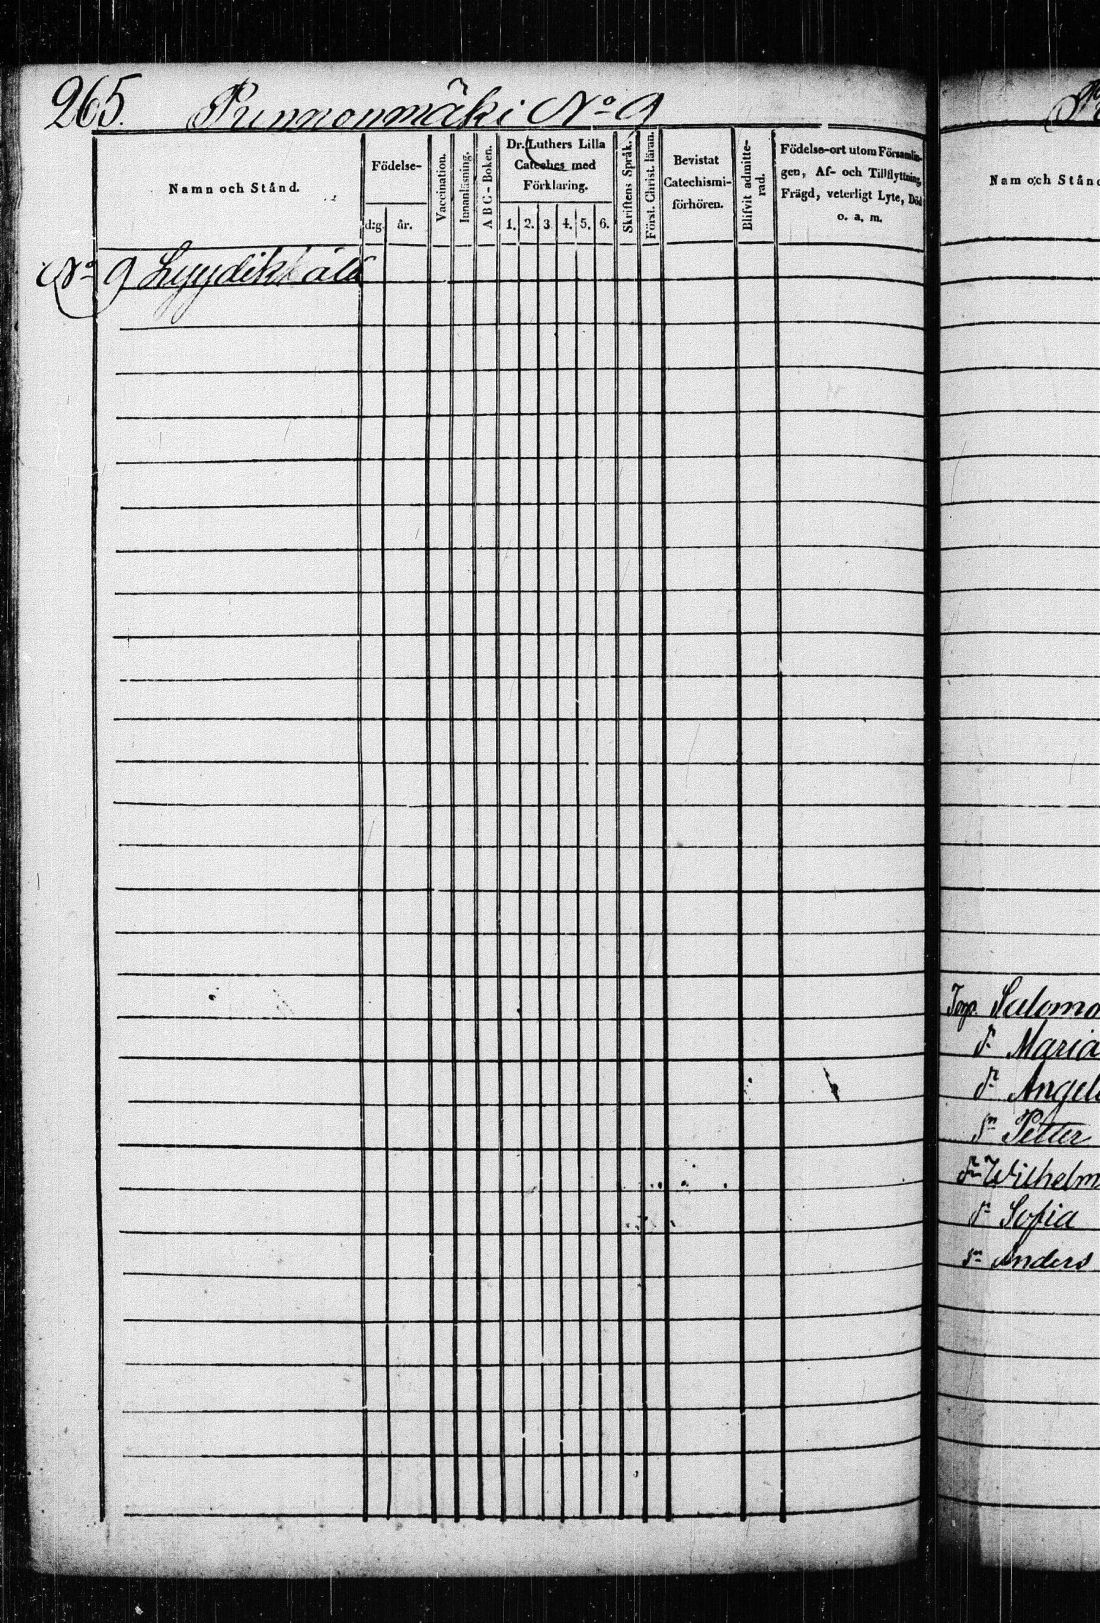 265. Punnonmäki No 9
Namn och Stånd.
Födelse-
d:g. år.
Vaccination.
Innanläsning.
ABC-Boken.
Dr. Luthers Lilla
Cateches med
Förklaring.
1. 2. 3 4. 5. 6.
Skriftens Språk.
Först. Christ. läran.
Bevistat
Catechismi-
förhören.
Blifvit admitte-
rad.
Födelse-ort utom Församlin-
gen, Af- och Tillflyttning,
Frägd, veterligt Lyte, Död
o. a. m.
No 9
Nam och Stånd
Salomo
Maria
Angel
Petter
Wilhelm
Sofia
Anders